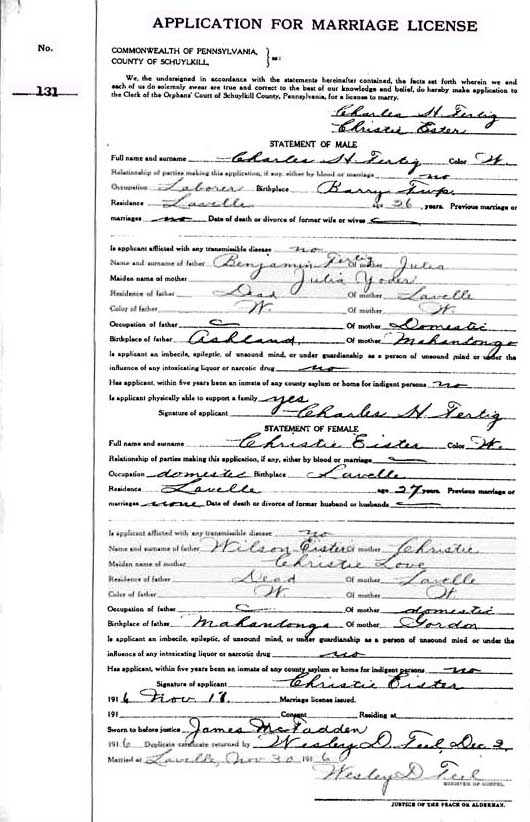 APPLICATION FOR MARRIAGE LICENSE
No.
131
COMMONWEALTH OF PENNSYLVANIA,
COUNTY OF SCHUYLKILL, } ss:
We, the undersigned in accordance with the statements hereinafter contained, the facts set forth wherein we and
each of us do solemnly swear are true and correct to the best of our knowledge and belief, do hereby make application to
the Clerk of the Orphans' Court of Schuylkill County, Pennsylvania, for a license to marry.
Charles H. Fertig
Christie Eister
STATEMENT OF MALE
Full name and surname Charles H Fertig Color W.
Relationship of parties making this application, if any, either by blood or marriage no
Occupation Laborer Birthplace Barry Twp.
Residence Lavelle age 26 years. Previous marriage or
marriages no Date of death or divorce of former wife or wives
Is applicant afflicted with any transmissible disease no
Name and surname of father Benjamin Fertig Of mother Julia
Maiden name of mother Julia Yoder
Residence of father Dead Of mother Lavelle
Color of father W. Of mother W.
Occupation of father Of mother Domestic
Birthplace of father Ashland Of mother Mahantongo
Is applicant an imbecile, epileptic, of unsound mind, or under guardianship as a person of unsound mind or under the
influence of any intoxicating liquor or narcotic drug no
Has applicant, within five years been an inmate of any county asylum or home for indigent persons no
Is applicant physically able to support a family yes
Signature of applicant Charles H. Fertig
STATEMENT OF FEMALE
Full name and surname Christie Eister Color W.
Relationship of parties making this application, if any, either by blood or marriage
Occupation domestic Birthplace Lavelle
Residence Lavelle age 27 years. Previous marriage or
marriages none Date of death or divorce of former husband or husbands
Is applicant afflicted with any transmissible disease no
Name and surname of father Wilson Eister Of mother Christie
Maiden name of mother Christie Love
Residence of father Dead Of mother Lavelle
Color of father W Of mother W
Occupation of father Of mother domestic
Birthplace of father Mahandonga Of mother Gordon
Is applicant an imbecile, epileptic, of unsound mind, or under guardianship as a person of unsound mind or under the
influence of any intoxicating liquor or narcotic drug no
Has applicant, within five years been an inmate of any county asylum or home for indigent persons no
Signature of applicant Christie Eister
191 6 Nov Marriage license issued.
191 Consent Residing at
Sworn to before justice James McFadden
191 6 Duplicate certificate returned by Wesley D. Teel, Dec 2
Married at Lavelle, Nov 30 191 6
Wesley D Teel
MINISTER OF GOSPEL.
JUSTICE OF THE PEACE OR ALDERMAN.